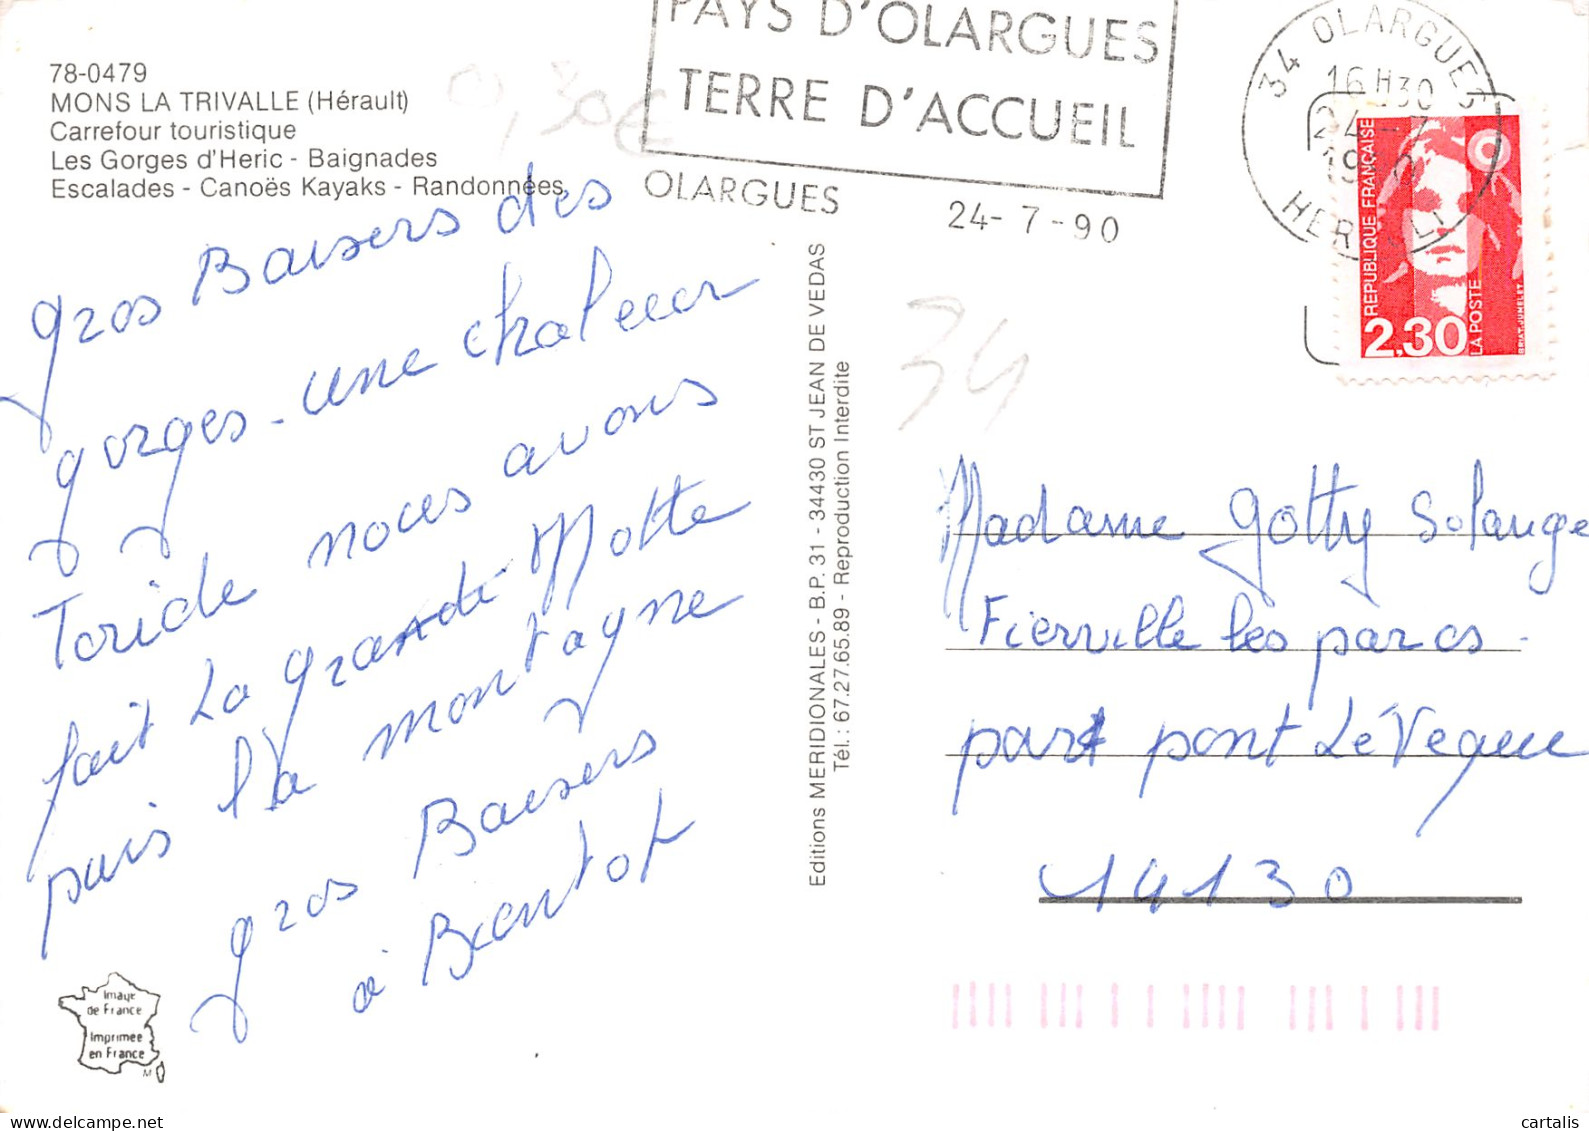 78-0479
MONS LA TRIVALLE (Hérault)
Carrefour touristique
Les Gorges d'Heric - Baignades
Escalades - Canoës Kayaks - Randonnées
0,30€
PAYS D'OLARGUES
TERRE D'ACCUEIL
OLARGUES
24-7-90
34 OLARGUES
16H30
24-7
19
HERAULT
REPUBLIQUE FRANÇAISE
2,30
LA POSTE
BRIAT.JUMELET
gros Baisers des
gorges - une chaleur
Toride nous avons
fait La grande Motte
puis la montagne
gros Baisers
a Bientot
Editions MERIDIONALES - B.P. 31 - 34430 ST JEAN DE VEDAS
Tél.: 67.27.65.89 - Reproduction Interdite
34
Madame Gotty Solange
Fierville les parcs -
par pont LéVeque
14130
Image
de France
Imprimee
en France
M
cartalis.com